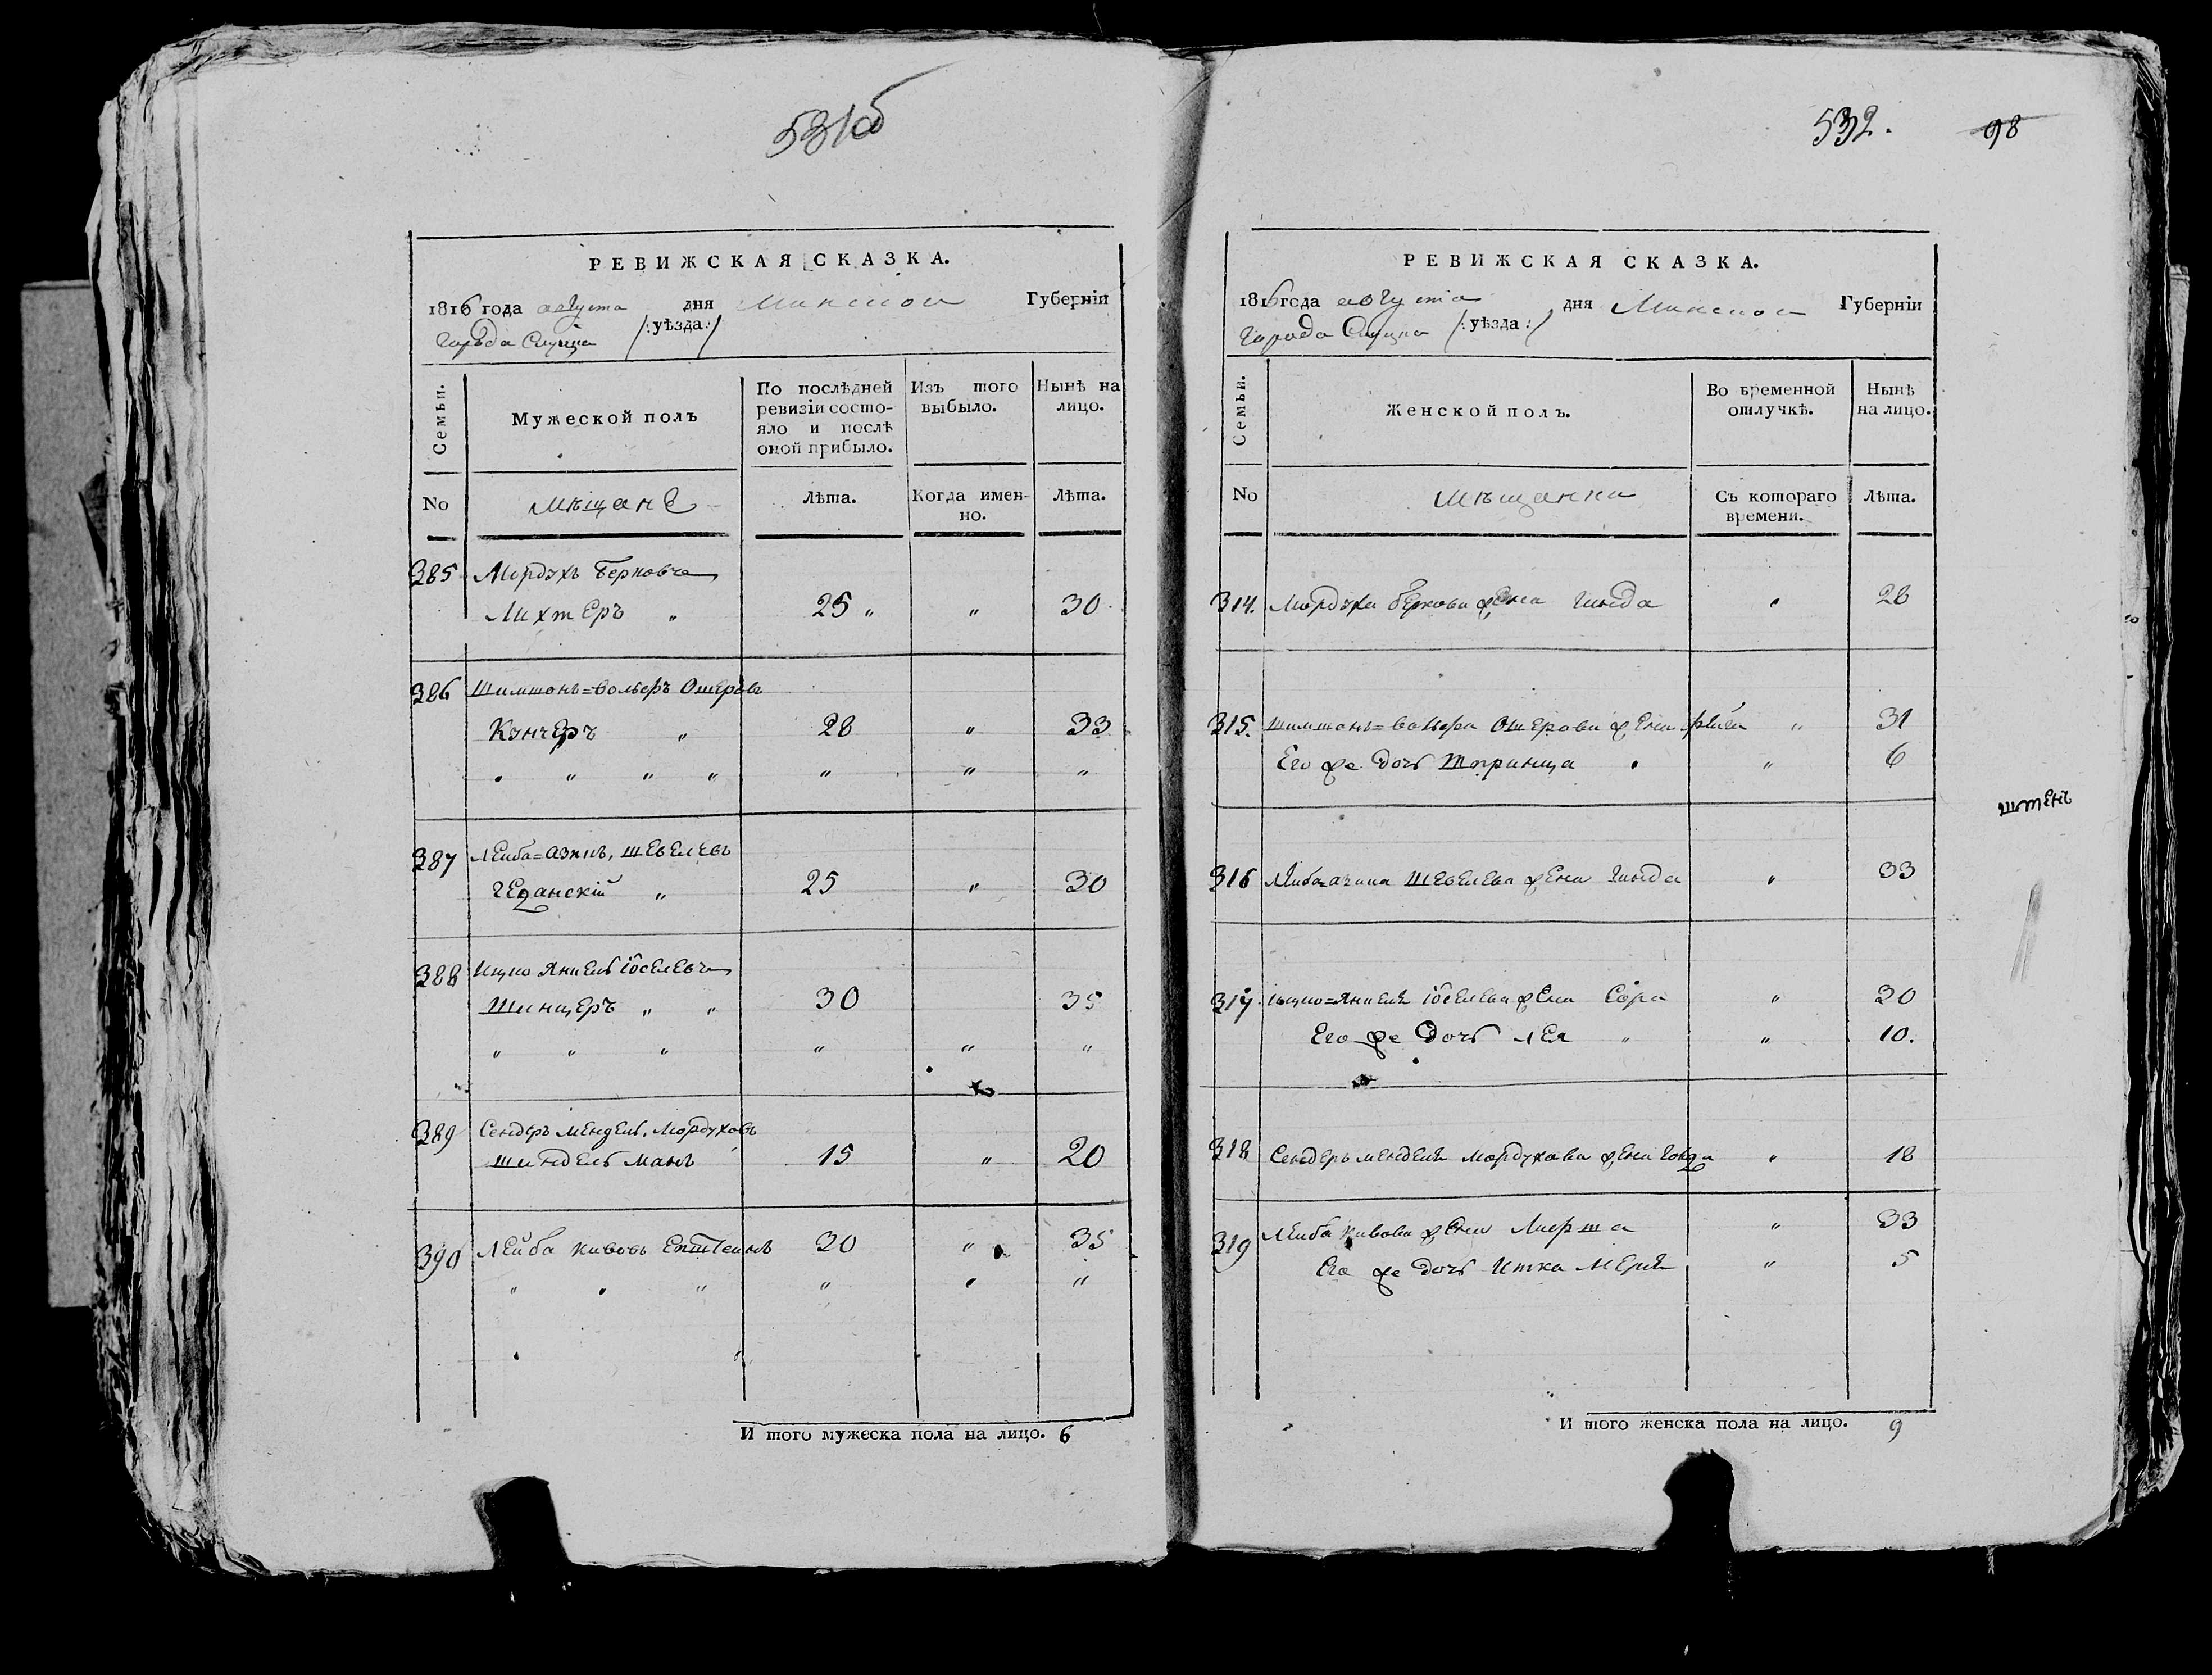 531об
РЕВИЖСКАЯ СКАЗКА.
1816 года августа дня Минской Губерніи
города Слуцка /:уѣзда:/
Семьи.
Мужеской полъ
По послѣдней
ревизіи состо-
яло и послѣ
оной прибыло.
Изъ того
выбыло.
Нынѣ на
лицо.
No
Мѣщане
Лѣта.
Когда имен-
но.
Лѣта.
385 Мордухъ Берковъ
Лихтеръ „ 25 „ „ 30
386 Шимшонъ=Вольфъ Ошеровъ
„ 28 „ 33
„ „ „ „ „ „ „
387 Лейба=Азикъ, Шевелевъ
„ 25 „ 30
388 Ицко Янкель Іоселевъ
Шинцеръ „ „ 30 35
„ „ „ „ „ „
389 Сендеръ Мендель, Мордуховъ
Шиндельманъ 15 „ 20
390 Лейба Кивовъ Епштейнъ 30 „ 35
„ „ „ „ „ „
И того мужеска пола на лицо. 6
532. 98
РЕВИЖСКАЯ СКАЗКА.
1816 года августа дня Минской Губерніи
города Слуцка /:уѣзда:/
Семьи.
Женской полъ.
Во временной
отлучкѣ.
Нынѣ
на лицо.
No
Мѣщанки
Съ котораго
времени.
Лѣта.
314. Мордуха Беркова жена Гинда „ 28
315. Шимшонъ=Вольфа Ошерова жена Фейга „ 31
Его же дочь Шпринца „ „ 6
316 Лейба=Азика Шевелева жена Гинда „ 33
317. Ицко=Янкеля Іоселева жена Сора „ 30
Его же дочь Лея „ „ 10.
318 Сендеръ Менделя Мордухова жена „ 18
319 Лейба Кивова жена „ 33
Его же дочь Итка Меря „ 5
И того женска пола на лицо. 9